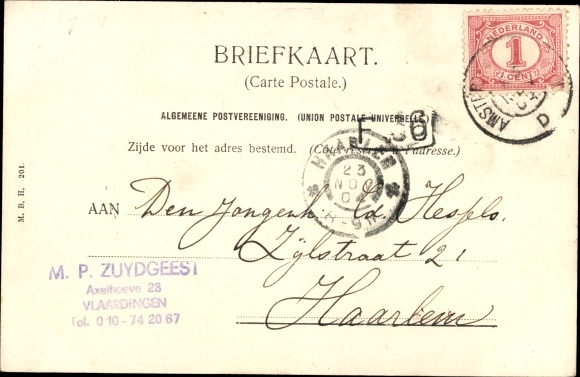 NEDERLAND
1
1 CENT
BRIEFKAART.
(Carte Postale.)
ALGEMEENE POSTVEREENIGING. (UNION POSTALE UNIVERSELLE)
Zijde voor het adres bestemd. (Côté réservé à l'adresse.)
AMSTER
D
HAARLEM
23
NOV
04
M. B. H. 201.
AAN Den Jongenh Ed. Hespels.
Zijlstraat 21
Haarlem
M. P. ZUYDGEEST
Axelhoeve 23
VLAARDINGEN
Tel. 010-74 20 67